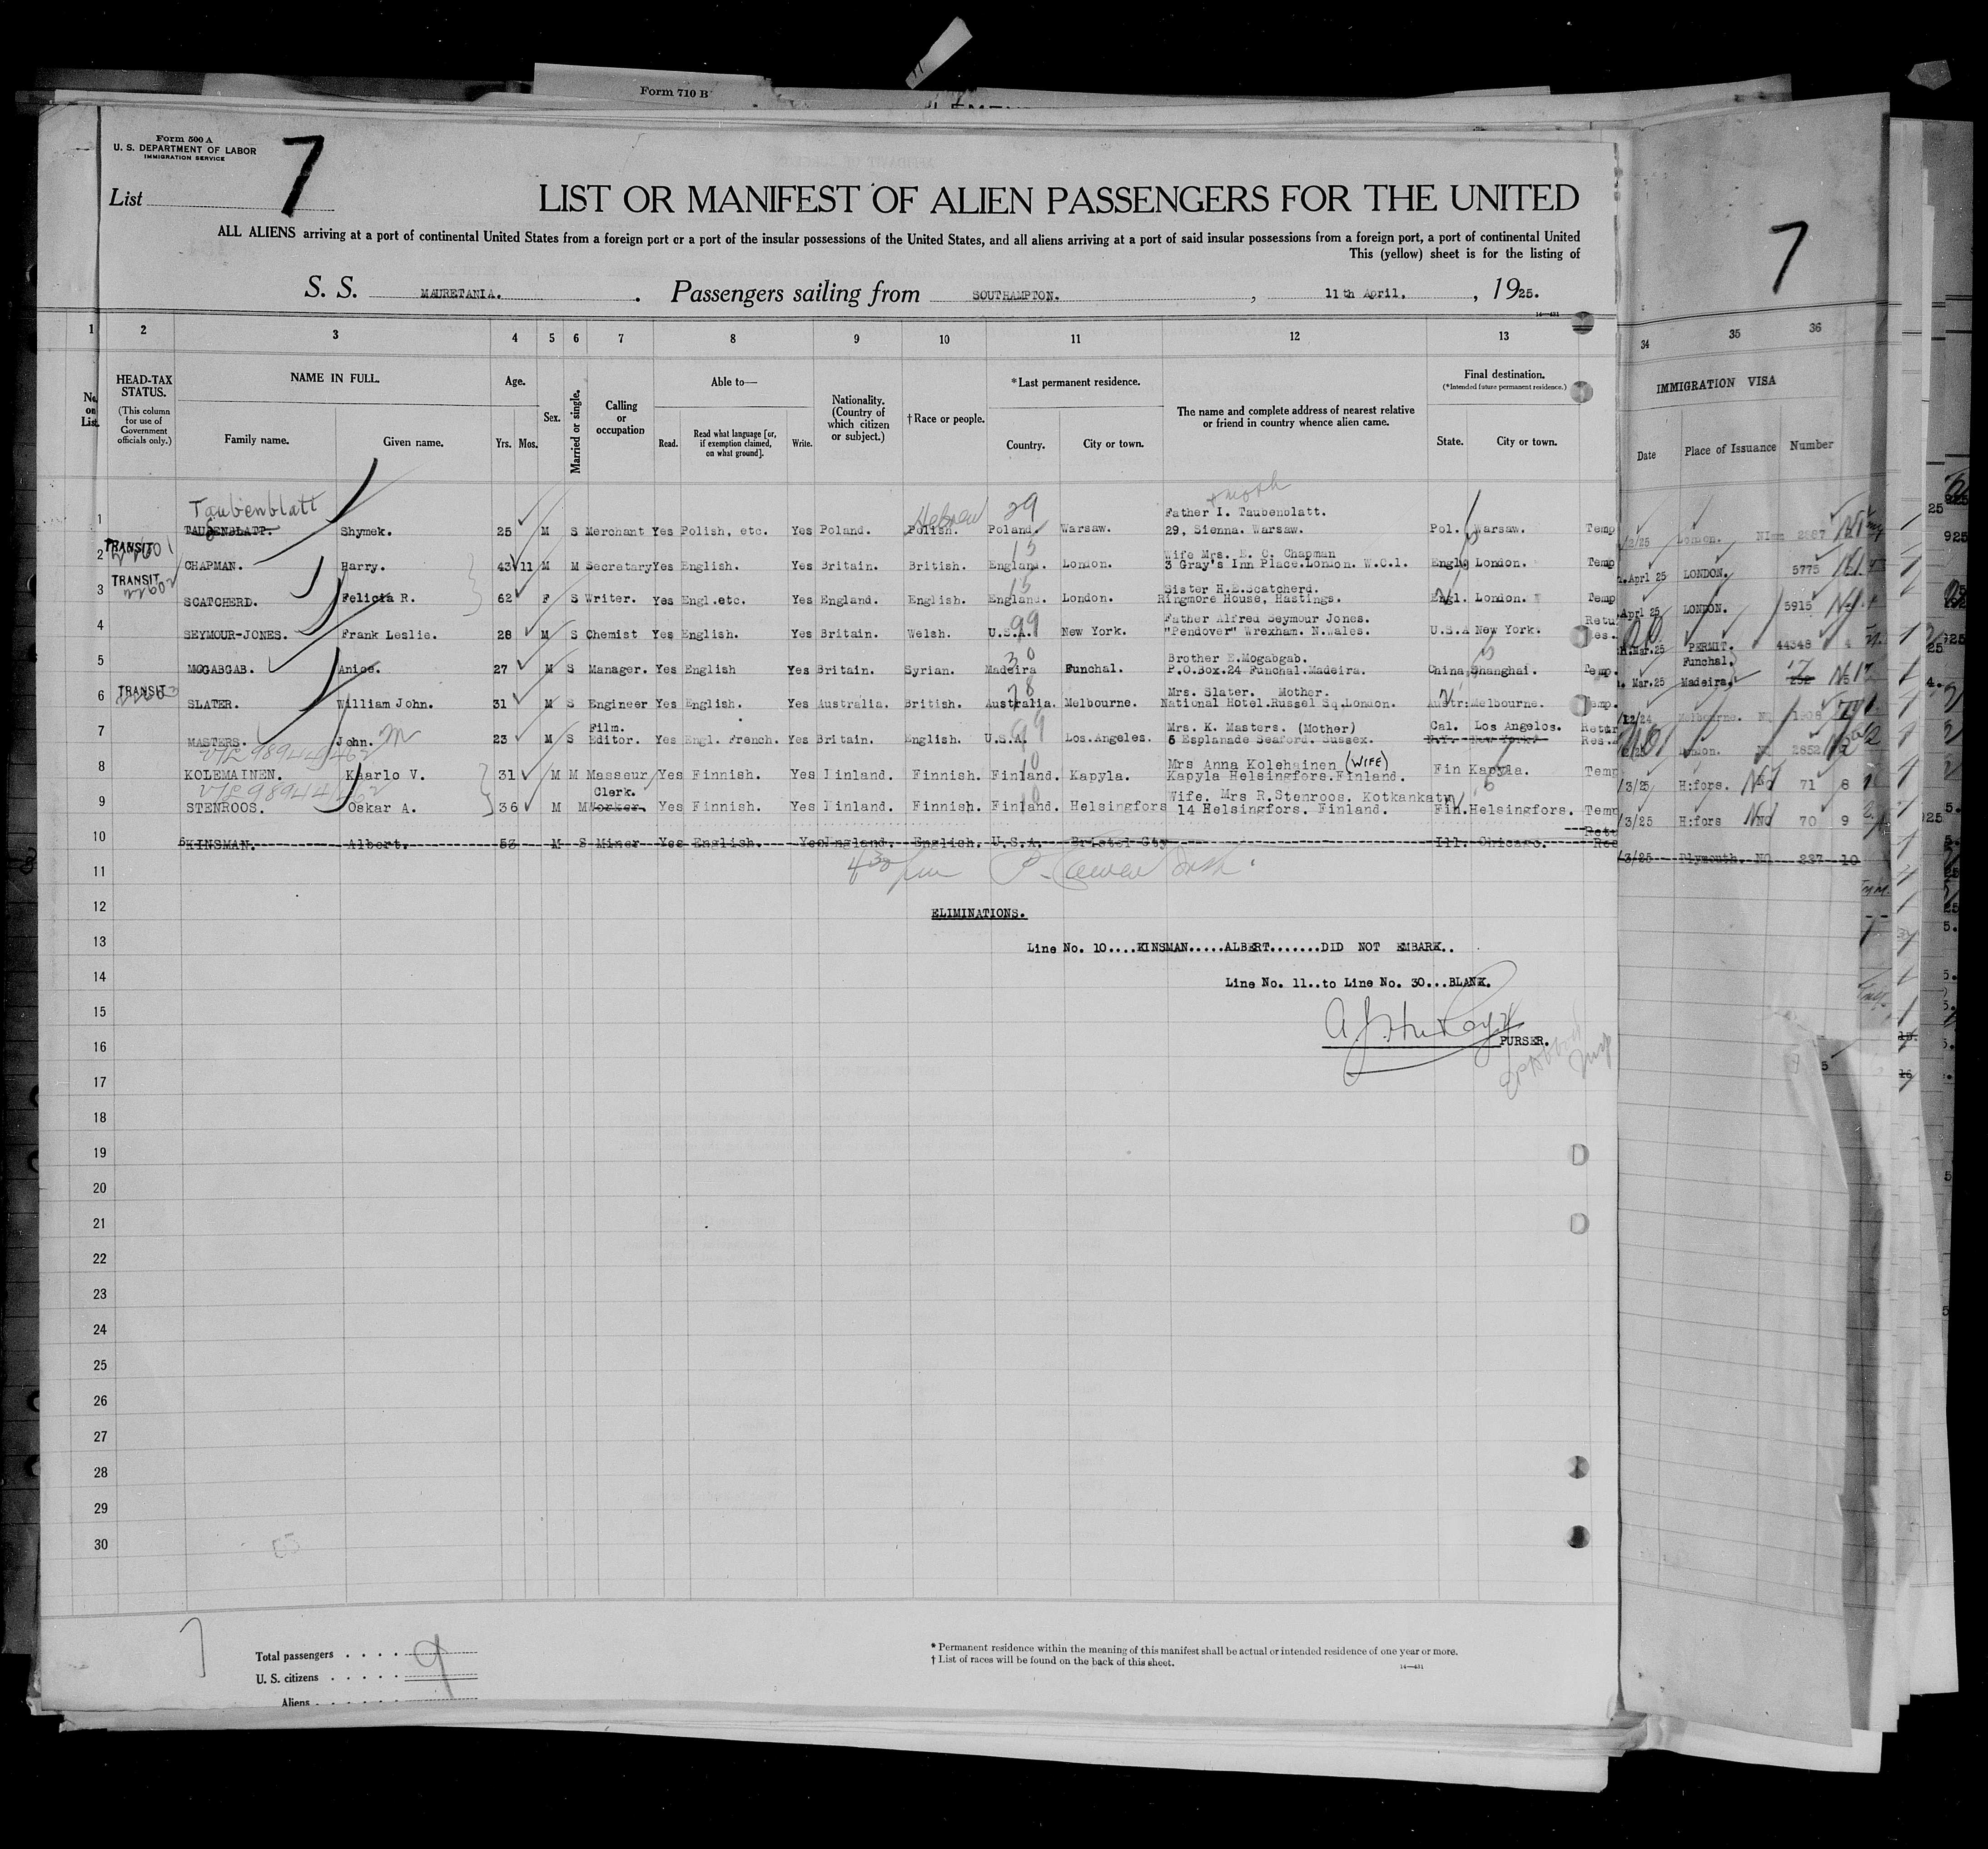 Form 710 B
Form 500 A
U. S. DEPARTMENT OF LABOR
IMMIGRATION SERVICE
7
List
LIST OR MANIFEST OF ALIEN PASSENGERS FOR THE UNITED
ALL ALIENS arriving at a port of continental United States from a foreign port or a port of the insular possessions of the United States, and all aliens arriving at a port of said insular possessions from a foreign port, a port of continental United
This (yellow) sheet is for the listing of
7
S. S. MAURETANIA. Passengers sailing from SOUTHAMPTON. , 11th April, , 1925.
1 2 3 4 5 6 7 8 9 10 11 12 13 34 35 36
No. on List.
HEAD-TAX STATUS. (This column for use of Government officials only.)
NAME IN FULL. Family name. Given name.
Age. Yrs. Mos.
Sex.
Married or single.
Calling or occupation
Able to— Read. Read what language [or, if exemption claimed, on what ground]. Write.
Nationality. (Country of which citizen or subject.)
†Race or people.
*Last permanent residence. Country. City or town.
The name and complete address of nearest relative or friend in country whence alien came.
Final destination. (*Intended future permanent residence.) State. City or town.
IMMIGRATION VISA
Date Place of Issuance Number
Taubenblatt Hebrew 29
Father I. Taubenblatt.
1 TAUBENBLATT. Shymek. 25 M S Merchant Yes Polish, etc. Yes Poland. Polish. Poland. Warsaw. 29, Sienna. Warsaw. Pol. Warsaw. Temp /2/25 London. 2887
TRANSIT 22601 15
Wife Mrs. E. C. Chapman
2 CHAPMAN. Harry. 43 11 M M Secretary Yes English. Yes Britain. British. England. London. 3 Gray's Inn Place.London. W.C.1. Engl. London. Temp Aprl 25 LONDON. 5775
TRANSIT 22602 15
Sister H.E.Scatcherd.
3 SCATCHERD. Felicia R. 62 F S Writer. Yes Engl.etc. Yes England. English. England. London. Ringmore House, Hastings. Engl. London. Temp Aprl 25 LONDON. 5915
99
Father Alfred Seymour Jones. Retu
4 SEYMOUR-JONES. Frank Leslie. 28 M S Chemist Yes English. Yes Britain. Welsh. U.S.A. New York. "Pendover" Wrexham. N.Wales. U.S.A New York. Res. Mar.25 PERMIT. 44348 4
30
Brother E.Mogabgab. Funchal.
5 MOGABGAB. Anice. 27 M S Manager. Yes English Yes Britain. Syrian. Madeira Funchal. P.O.Box.24 Funchal.Madeira. China Shanghai. Temp. Mar.25 Madeira. 252 5
TRANSIT 22603 28
Mrs. Slater. Mother.
6 SLATER. William John. 31 M S Engineer Yes English. Yes Australia. British. Australia. Melbourne. National Hotel.Russel Sq.London. Austr: Melbourne. Temp. /12/24 Melbourne.
Film. 99 Mrs. K. Masters. (Mother) Cal. Los Angelos. Retur
7 MASTERS. John. M 23 M S Editor. Yes Engl. French. Yes Britain. English. U.S.A. Los.Angeles. 5 Esplanade Seaford. Sussex. N.Y. New York. Res. London. 2852
10
Mrs Anna Kolehainen (WIFE)
8 KOLEMAINEN. Kaarlo V. 31 M M Masseur Yes Finnish. Yes Finland. Finnish. Finland. Kapyla. Kapyla Helsingfors.Finland. Fin Kapyla. Temp /3/25 H:fors. NO 71 8
Clerk. 10 Wife. Mrs R.Stenroos. Kotkankatu
9 STENROOS. Oskar A. 36 M M Worker. Yes Finnish. Yes Finland. Finnish. Finland. Helsingfors 14 Helsingfors. Finland. Fin. Helsingfors. Temp /3/25 H:fors NO 70 9
10 KINSMAN. Albert. 53 M S Miner Yes English. Yes England. English. U.S.A. Bristol City Ill. Chicago. Retu Res /3/25 Plymouth. NO 237 10
11
12 ELIMINATIONS.
13 Line No. 10....KINSMAN.....ALBERT.......DID NOT EMBARK..
14 Line No. 11..to Line No. 30...BLANK.
15
16 PURSER.
17
18
19
20
21
22
23
24
25
26
27
28
29
30
Total passengers . . . . 9
U. S. citizens . . . . .
Aliens . . . . . .
* Permanent residence within the meaning of this manifest shall be actual or intended residence of one year or more.
† List of races will be found on the back of this sheet.
14—431